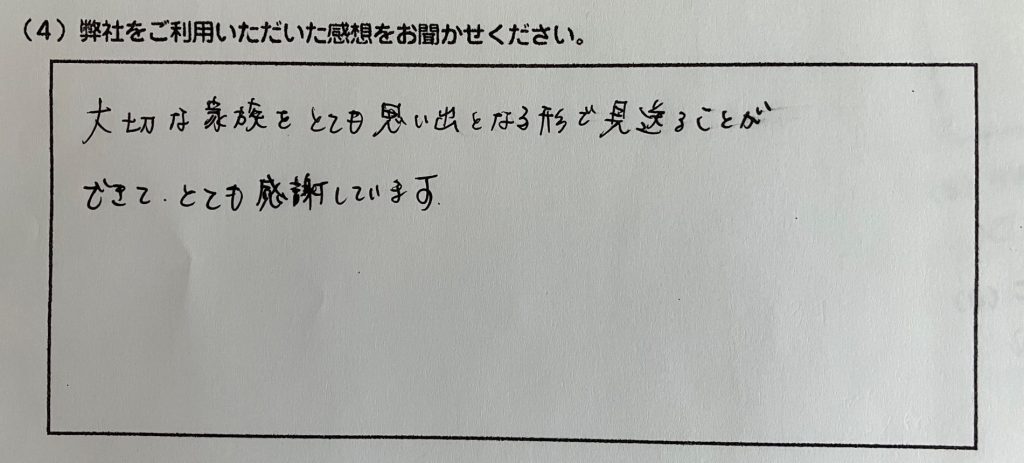 (4) 弊社をご利用いただいた感想をお聞かせください。
大切な家族をとても思い出となる形で見送ることが
できて、とても感謝しています。